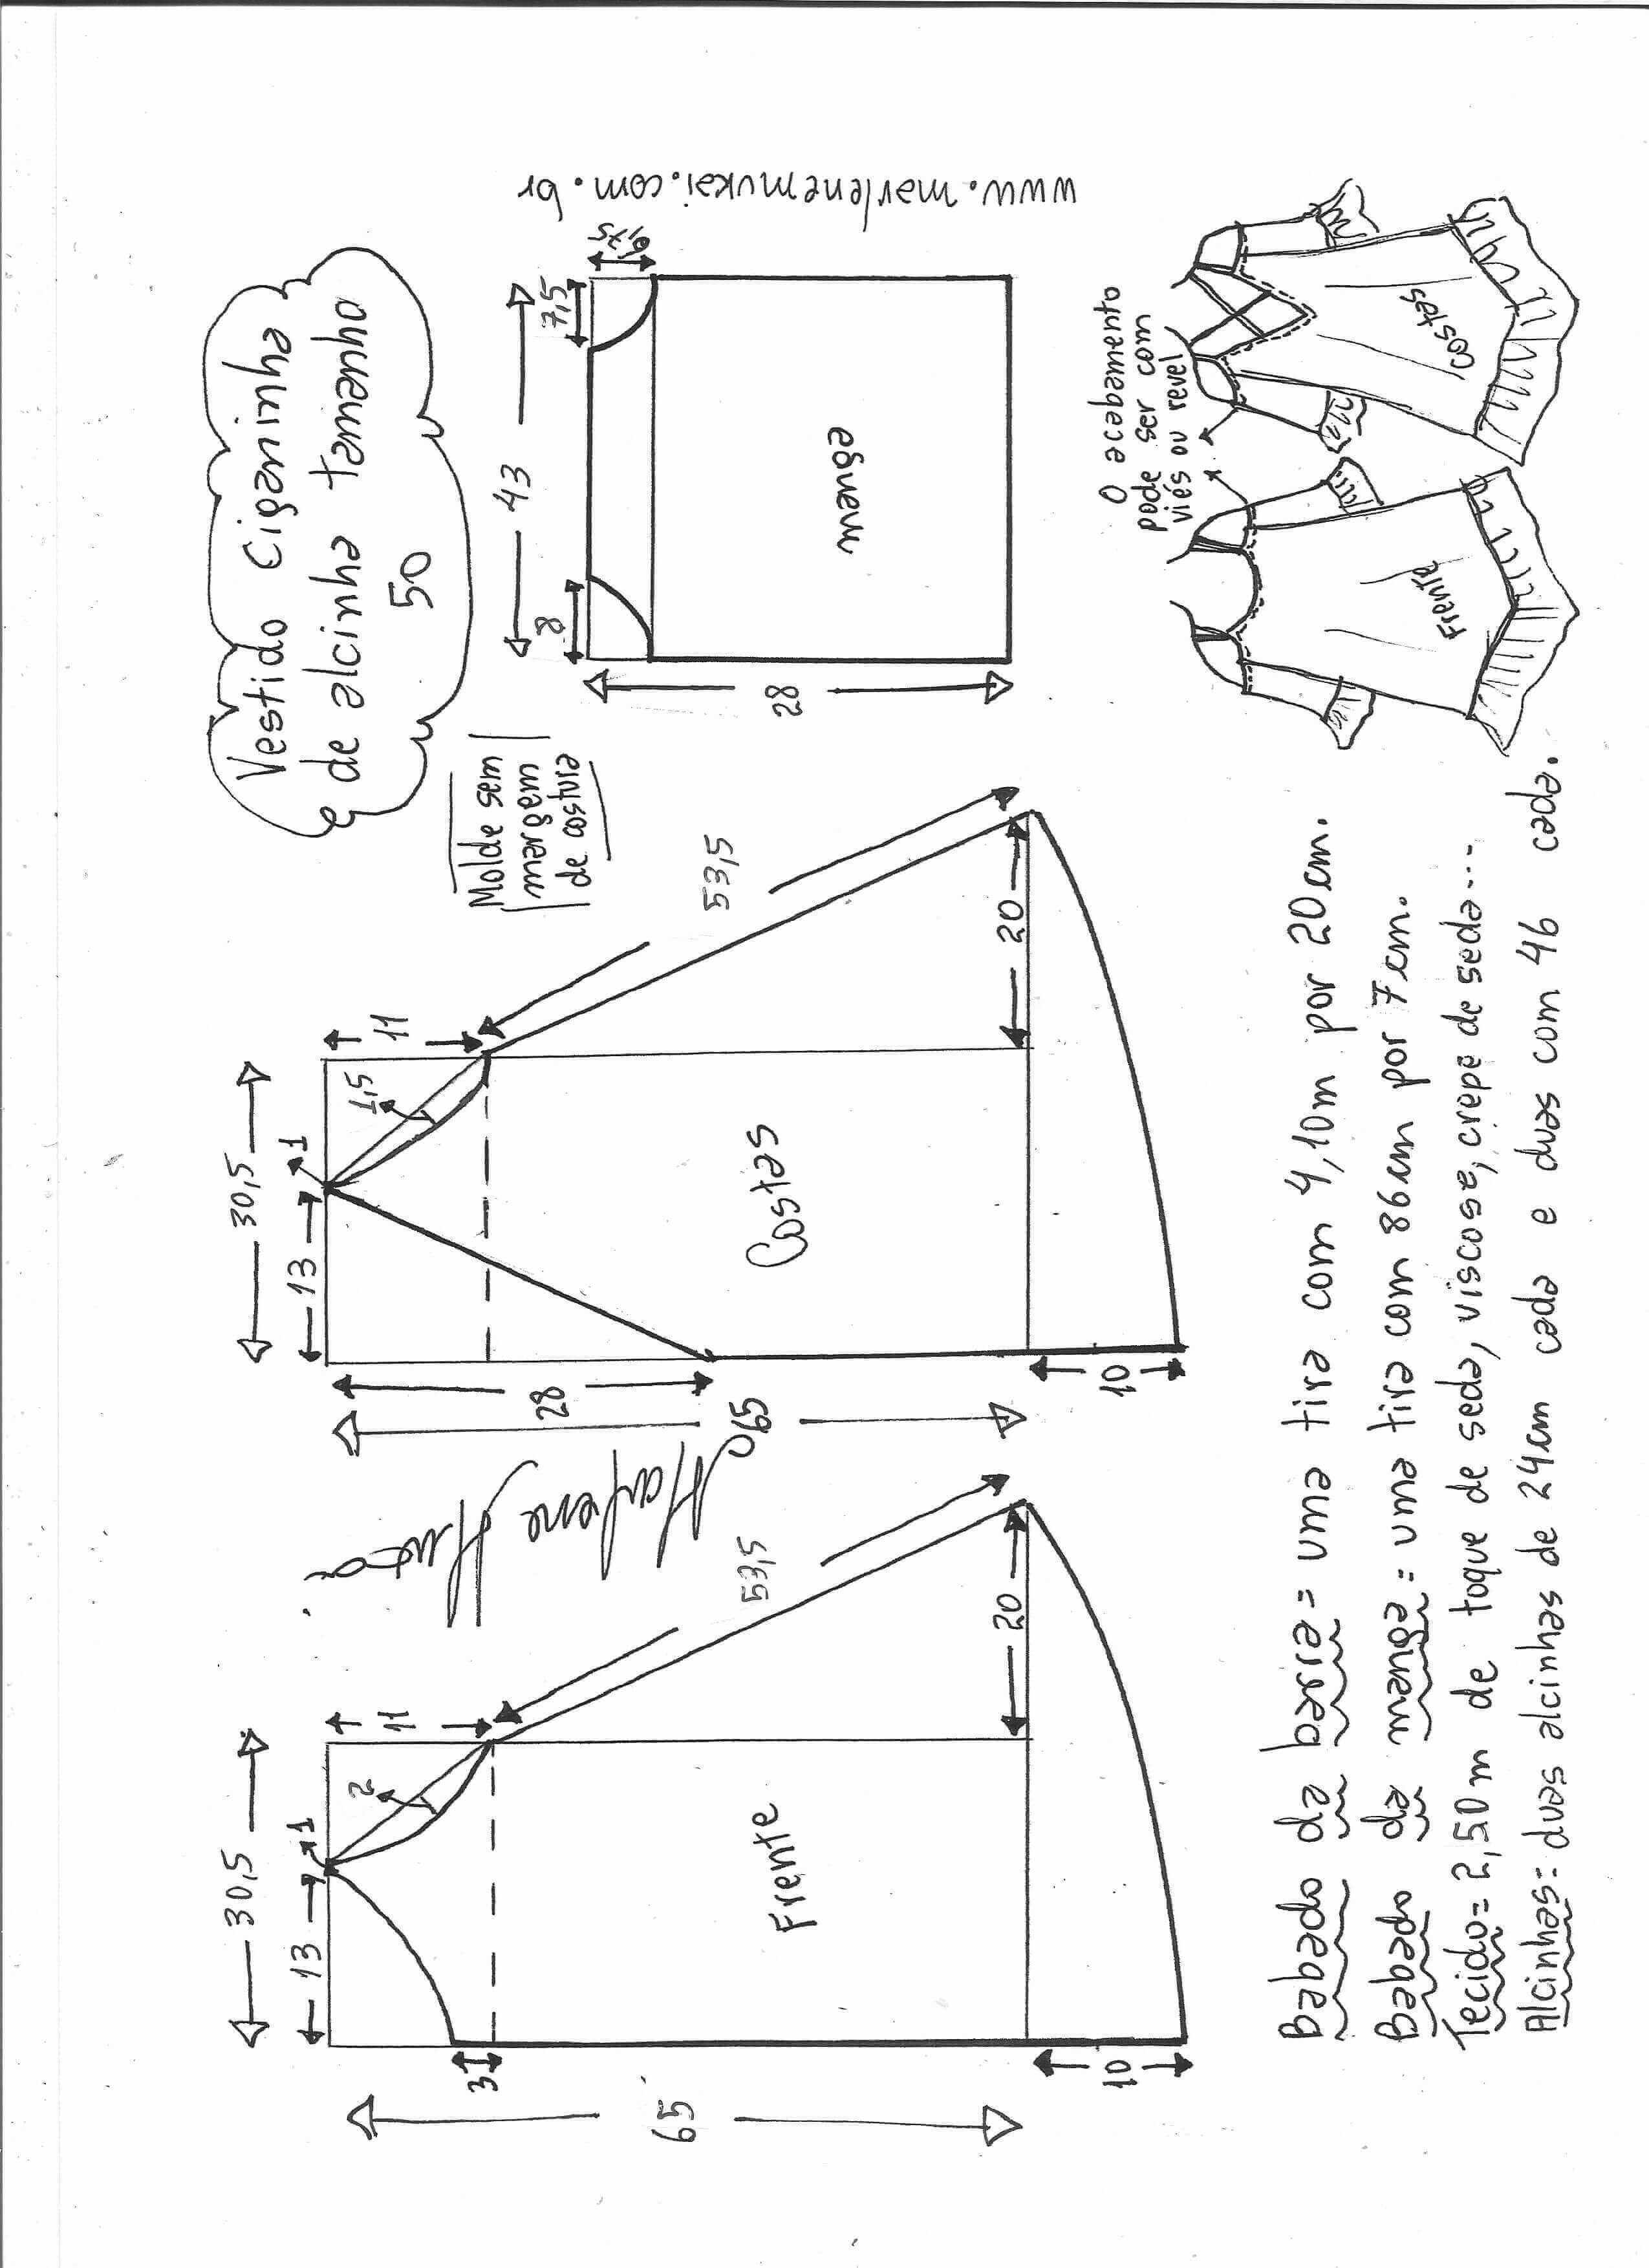 Vestido Ciganinha
de alcinha tamanho
50
Molde sem
margem
de costura
www.marlenemukai.com.br
30,5
13
1
2
11
31
53,5
65
Frente
20
10
Marlene Mukai
30,5
13
1
1,5
11
28
53,5
65
Costas
20
10
43
8
7,5
6,75
28
manga
O acabamento
pode ser com
viés ou revel
Frente
Costas
Babado da barra = uma tira com 4,10m por 20cm.
Babado da manga = uma tira com 86cm por 7cm.
Tecido = 2,50m de toque de seda, viscose, crepe de seda...
Alcinhas = duas alcinhas de 24cm cada e duas com 46 cada.